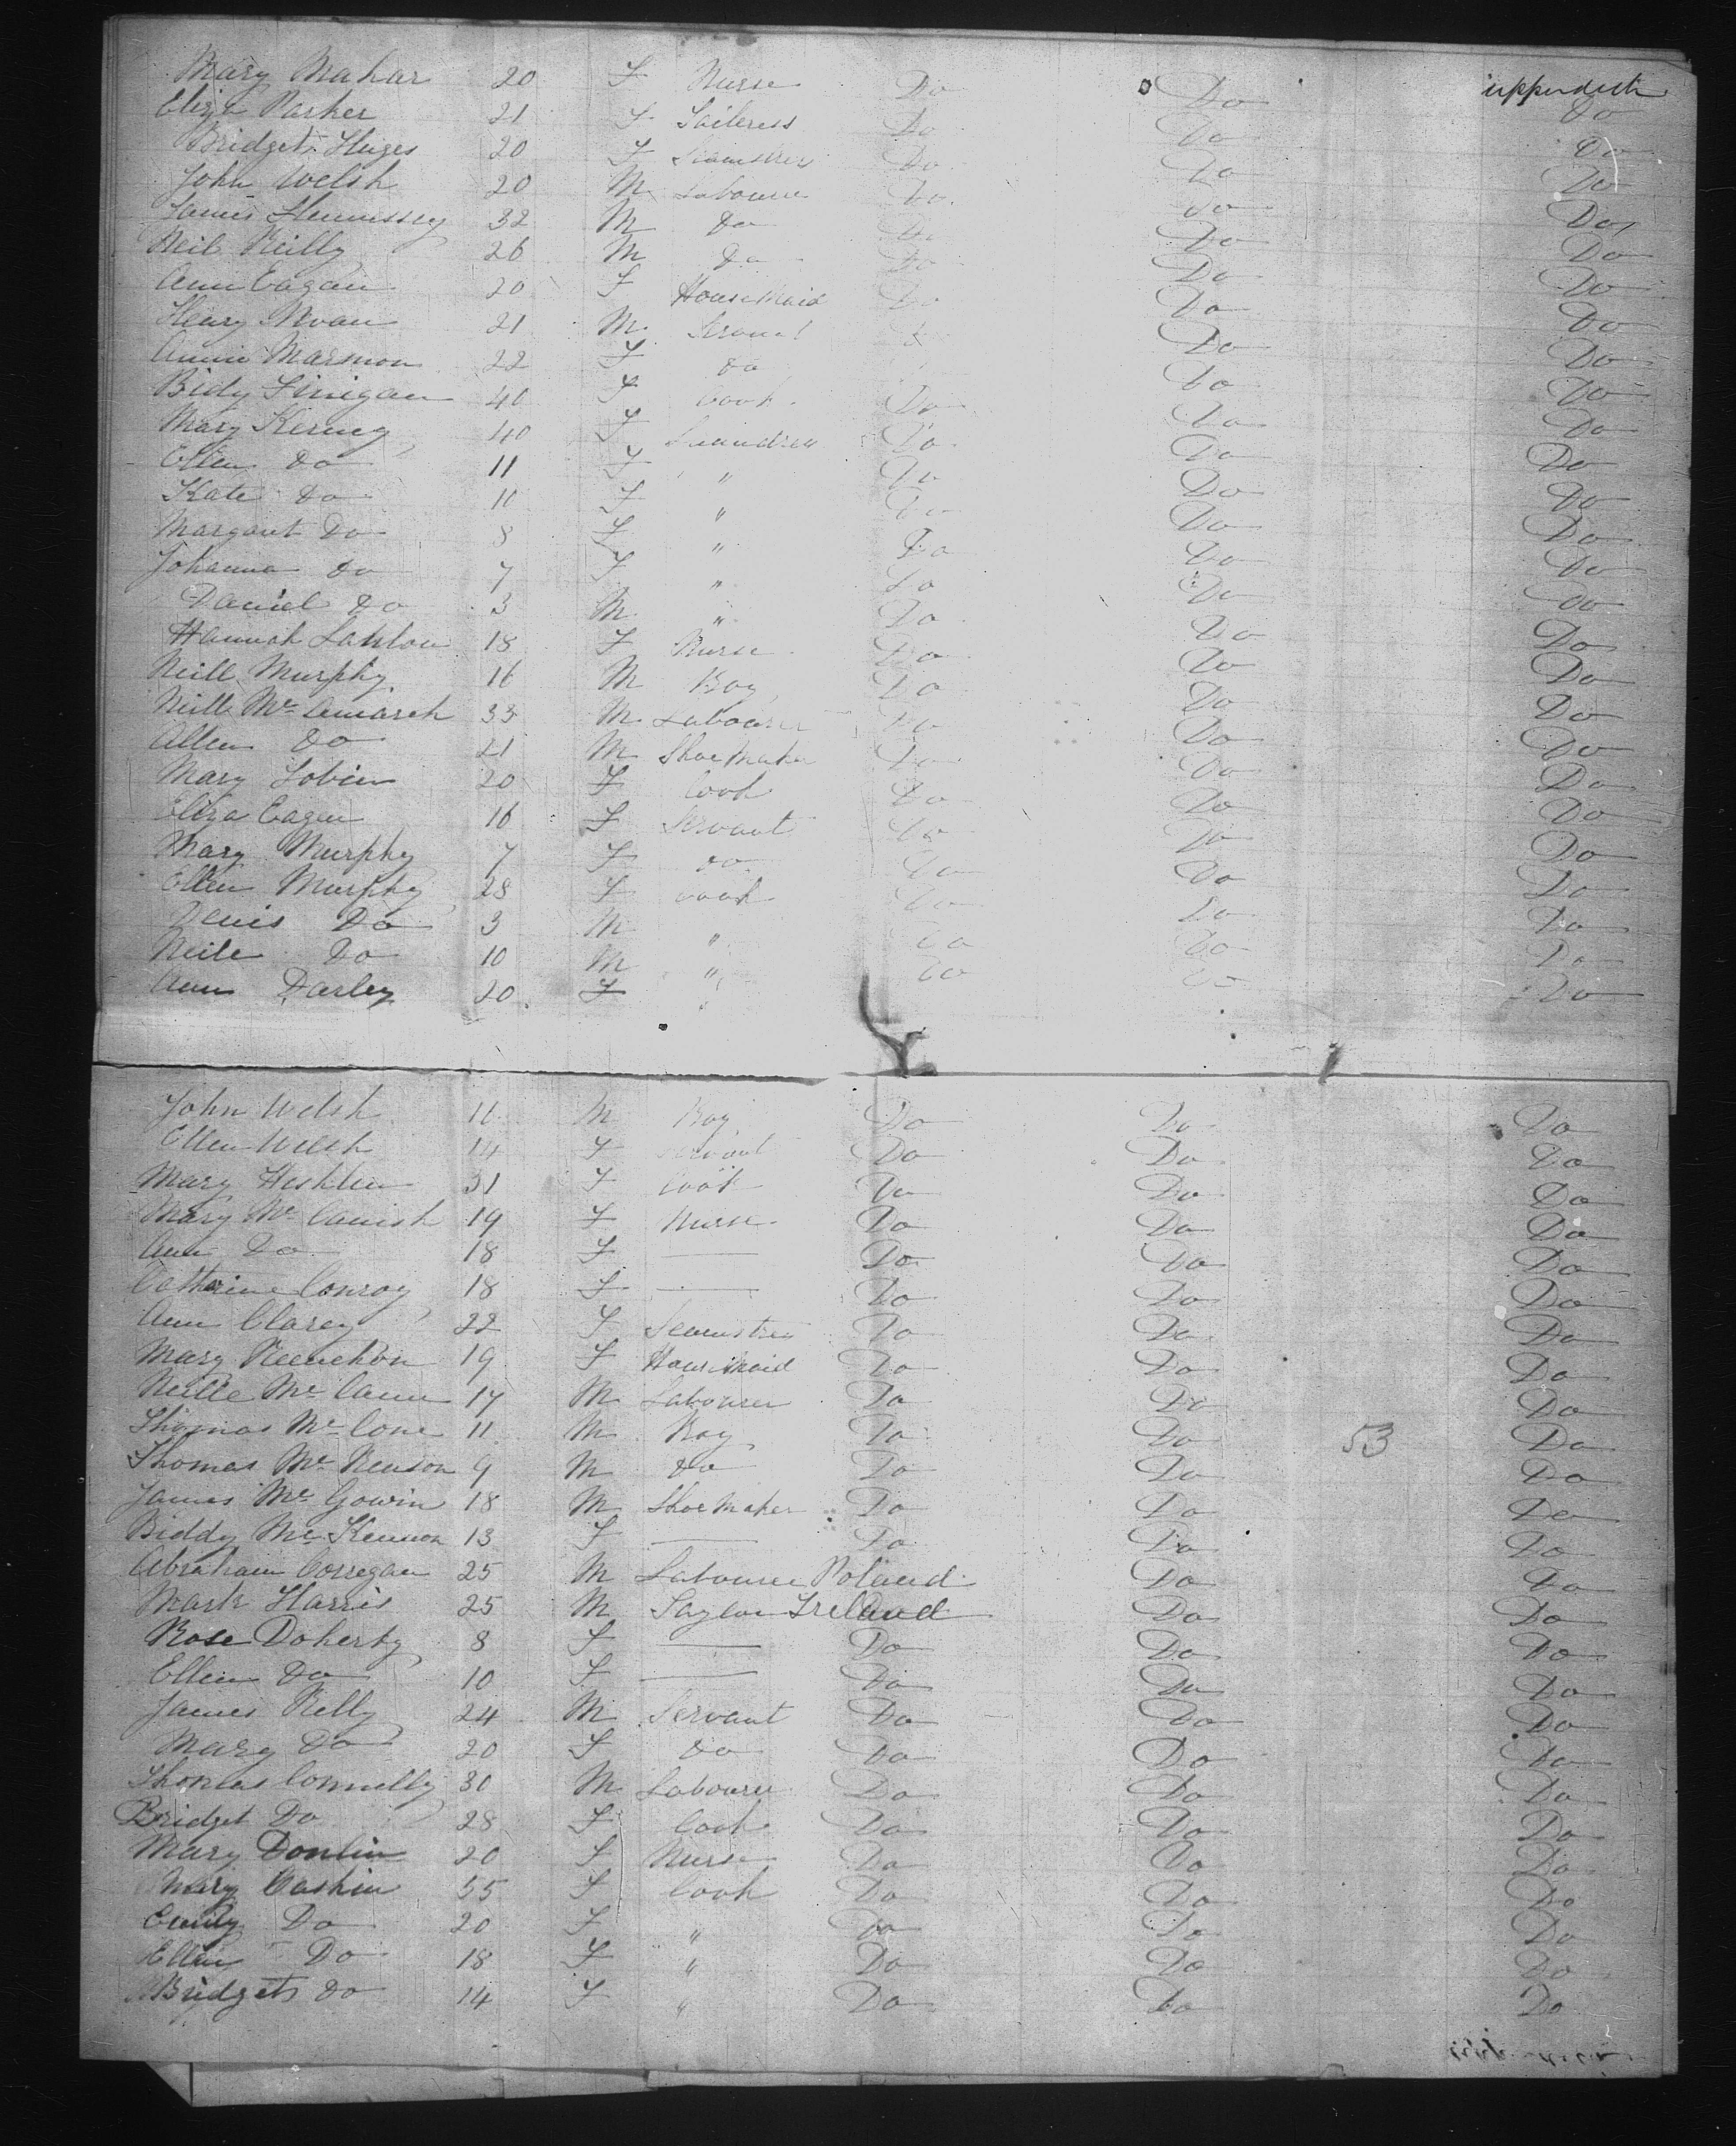 Mary Mahar 20 F Nurse Do Do upperdeck
Eliza Parker 21 F Taileress Do Do Do
Bridget Huges 20 F Seamstres Do Do Do
John Welsh 20 M Labourer Do Do Do
James Hennessey 32 M Do Do Do Do
Neil Reilly 26 M Do Do Do Do
Ann Eagan 20 F House Maid Do Do Do
Henry Moan 21 M Servant Do Do
Annie Marmon 22 F Do Do Do
Bidy Finigan 40 F Cook Do Do Do
Mary Kerney 40 F Laundress Do Do Do
Ellen Do 11 F " Do Do Do
Kate Do 10 F " Do Do Do
Margaret Do 8 F " Do Do Do
Johanna Do 7 F " Do Do Do
Daniel Do 3 M " Do Do Do
Hannah 18 F Nurse Do Do Do
Neill Murphy 16 M Boy Do Do Do
Neill Mc 33 M Labourer Do Do Do
Allen Do 21 M Shoe Maker Do Do Do
Mary Tobin 20 F Cook Do Do Do
Eliza Eagen 16 F Servant Do Do Do
Mary Murphy 7 F Do Do Do Do
Ellen Murphy 28 F Cook Do Do Do
Denis Do 3 M " Do Do Do
Neile Do 10 M " Do Do Do
Ann Darley 20 F " Do Do
John Welsh M Boy Do Do Do
Ellen Welsh 14 F Servant Do Do Do
Mary Heshlen 31 F Cook Do Do Do
Mary Mc Canish 19 F Nurse Do Do Do
Ann Do 18 F — Do Do Do
Catherine Conroy 18 F — Do Do Do
Ann Clarey 22 F Seamstres Do Do Do
Mary 19 F House Maid Do Do Do
Neille Mc Cann 17 M Labourer Do Do Do
Thomas Mc Cone 11 M Boy Do Do 53 Do
Thomas Mc Kenson 9 M Do Do Do Do
James Mc Gowin 18 M Shoe Maker Do Do Do
Biddy Mc Kennon 13 F — Do Do Do
Abraham Corregan 25 M Labourer Poland Do Do
Mark Harris 25 M Taylor Ireland Do Do
Rose Doherty 8 F — Do Do Do
Ellen Do 10 F — Do Do Do
James Kelly 24 M Servant Do Do Do
Mary Do 20 F Do Do Do Do
Thomas Connelly 30 M Labourer Do Do Do
Bridget Do 28 F Cook Do Do Do
Mary Donlin 20 F Nurse Do Do Do
Mary Cashin 55 F Cook Do Do Do
Emily Do 20 F " Do Do Do
Ellen Do 18 F " Do Do Do
Bridget Do 14 F " Do Do Do